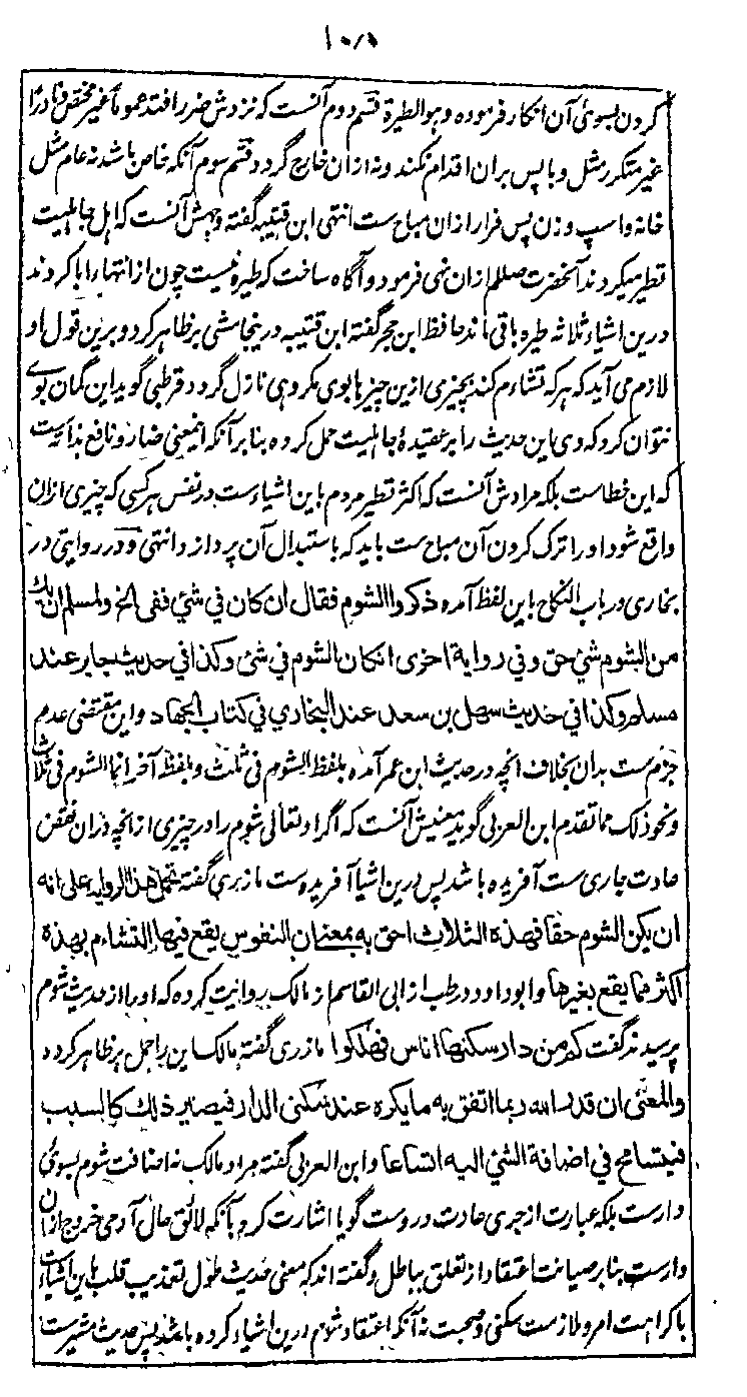 ۱۰۸
کردن بسوئ آن انکار فرموده وہو الطیرة قسم دوم آنست کہ نزدش ضرر افتد عموماً غیر مختص ونادرًا
غیر متکرر مثل وبا پس بران اقدام نکند ونہ ازان خارج گردد قسم سوم آنکہ خاص باشد نہ عام مثل
خانہ واسپ وزن پس فرار ازان مباحست انتہی ابن قتیبہ گفتہ وجہش آنست کہ اہل جاہلیت
تطیر میکردند آنحضرت صللم ازان نہی فرمود وآگاہ ساخت کہ طیرہ نیست چون از انتہاء ابا کردند
درین اشیاء ثلاثہ طیرہ باقی ماند حافظ ابن حجر گفتہ ابن قتیبہ درینجا مشی بر ظاہر کرد وبرین قول او
لازم می آید کہ ہر کہ تشاءم کند بچیزی ازین چیزہا بوی مکروہی نازل گردد قرطبی گوید این گمان بوے
نتوان کرد کہ وی این حدیث را بر عقیدۂ جاہلیت حمل کردہ بنابر آنکہ اینمعنی ضار ونافع بذاتہ است
کہ این خطاست بلکہ مرادش آنست کہ اکثر تطیر مردم باین اشیاءست در نفس ہر کسی کہ چیزی ازان
واقع شود اورا ترک کردن آن مباحست باید کہ باستبدال آن پردازد انتہی ودر روایتی در
بخاری در باب النکاح باین لفظ آمدہ ذکروا الشوم فقال ان کان في شئ ففي الخ ولمسلم ان یك
من الشوم شئ حق وفي رواية اخرى ان كان الشوم في شئ وكذا في حديث جابر عند
مسلم وكذا في حديث سهل بن سعد عند البخاري في كتاب الجهاد واین مقتضی عدم
جزمست بدان بخلاف آنچہ در حدیث ابن عمر آمدہ بلفظ الشوم فی ثلث وبلفظ آخر انما الشوم فی ثلاث
ونحو ذلک مما تقدم ابن العربی گوید معنیش آنست کہ اگر اوتعالی شوم را در چیزی از انچہ دران نقض
عادت جاری ست آفریدہ باشد پس درین اشیا آفریدہ ست مازری گفتہ محمل هذه الرواية على انه
ان يكن الشوم حقا فهذه الثلاث احق به بمعنى ان النفوس يقع فيها التشاءم بهذه
اكثر مما يقع بغيرها وابو داود در طب از ابی القاسم از مالک روایت کردہ کہ اورا از حدیث شوم
پرسیدند گفت كم من دار سكنها اناس فهلكوا مازری گفتہ مالک این را حمل بر ظاہر کردہ
والمعنى ان قدر الله ربما اتفق به ما يكره عند سكنى الدار فيصير ذلك كالسبب
فيتسامح في اضافة الشئ اليه اتساعا وابن العربی گفتہ مراد مالک نہ اضافت شوم بسوئ
دارست بلکہ عبارت از جری عادت دروست گویا اشارت کرد بآنکہ لائق حال آدمی خروج ازان
دارست بنابر صیانت اعتقاد از تعلق بباطل وگفتہ اند کہ معنی حدیث طول تعذیب قلب باین اشیاست
با کراہت امر وملازمت سکنی وصحبت نہ آنکہ اعتقاد شوم درین اشیاء کردہ باشد پس حدیث مشیرست